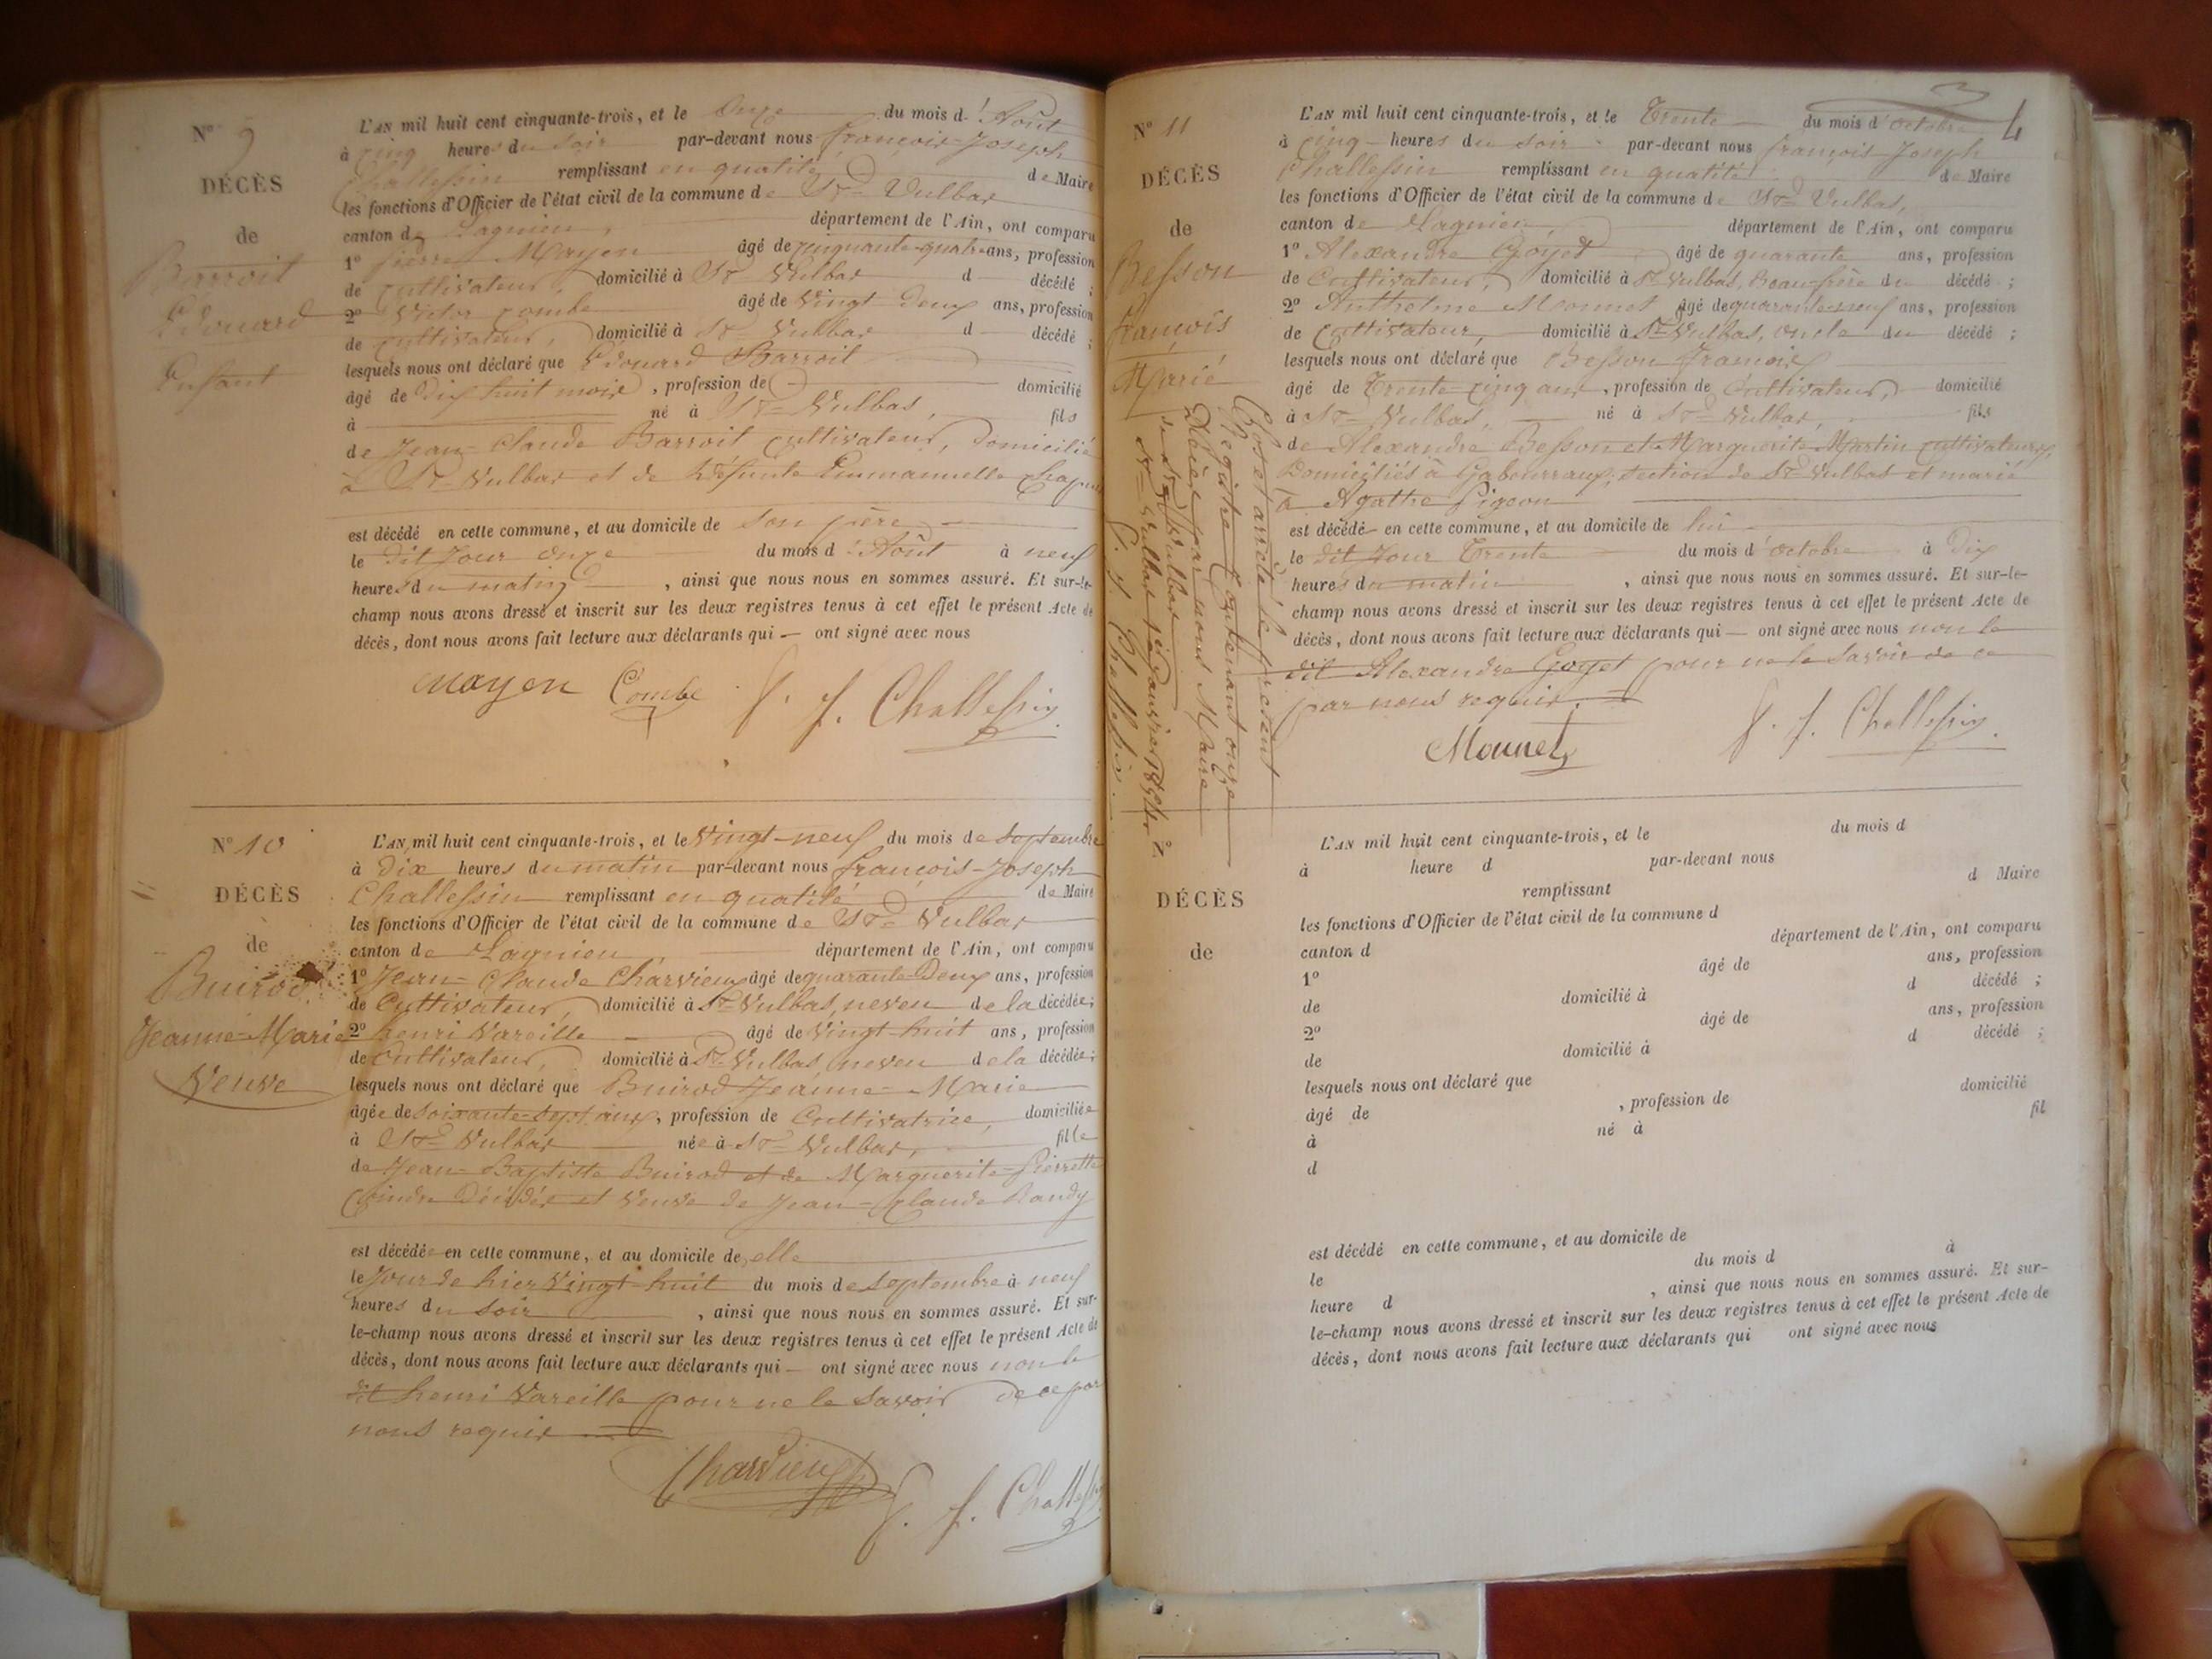 N° 9
DÉCÈS
de
Barroit
Edouard
Enfant
L'AN mil huit cent cinquante-trois, et le Onze du mois d'Août
à cinq heures du soir par-devant nous françois-Joseph
Challessin remplissant en qualité de Maire
les fonctions d'Officier de l'état civil de la commune de St= Vulbas
canton de Lagnieu, département de l'Ain, ont comparu
1° pierre Moyen âgé de cinquante-quatre ans, profession
de cultivateur, domicilié à St= Vulbas d décédé ;
2° Victor Combe âgé de Vingt-Deux ans, profession
de cultivateur, domicilié à St= Vulbas d décédé ;
lesquels nous ont déclaré que Edouard Barroit
âgé de Dix huit mois, profession de domicilié
à né à St= Vulbas, fils
de Jean-Claude Barroit cultivateur, Domicilié
à St= Vulbas et de Défunte Emmanuelle
est décédé en cette commune, et au domicile de son père
le dit Jour onze du mois d'Août à neuf
heures du matin, ainsi que nous nous en sommes assuré. Et sur-le-
champ nous avons dressé et inscrit sur les deux registres tenus à cet effet le présent Acte de
décès, dont nous avons fait lecture aux déclarants qui — ont signé avec nous
Moyen Combe f. j. Challessin
N° 10
DÉCÈS
de
Buirod
Jeanne-Marie
Veuve
L'AN mil huit cent cinquante-trois, et le Vingt-neuf du mois de Septembre
à Dix heures du matin par-devant nous françois-Joseph
Challessin remplissant en qualité de Maire
les fonctions d'Officier de l'état civil de la commune de St= Vulbas
canton de Lagnieu, département de l'Ain, ont comparu
1° Jean-Claude Charvieux âgé de quarante-Deux ans, profession
de Cultivateur, domicilié à St= Vulbas, neveu de la décédée ;
2° henri Vareille âgé de Vingt-huit ans, profession
de Cultivateur, domicilié à St= Vulbas, neveu de la décédée ;
lesquels nous ont déclaré que Buirod Jeanne-Marie
âgée de soixante-sept ans, profession de Cultivatrice, domiciliée
à St= Vulbas née à St= Vulbas, fille
de Jean-Baptiste Buirod et de Marguerite-pierrette
Décédés et Veuve de Jean-Claude
est décédée en cette commune, et au domicile de elle
le Jour de hier Vingt-huit du mois de Septembre à neuf
heures du soir, ainsi que nous nous en sommes assuré. Et sur-
le-champ nous avons dressé et inscrit sur les deux registres tenus à cet effet le présent Acte de
décès, dont nous avons fait lecture aux déclarants qui — ont signé avec nous non le
dit henri Vareille pour ne le savoir de ce par
nous requis
Charvieux f. j. Challessin
4
N° 11
DÉCÈS
de
Besson
François
Marié
L'AN mil huit cent cinquante-trois, et le Trente du mois d'octobre
à cinq heures du soir par-devant nous françois Joseph
Challessin remplissant en qualité de Maire
les fonctions d'Officier de l'état civil de la commune de St= Vulbas,
canton de Lagnieu, département de l'Ain, ont comparu
1° Alexandre Goyet âgé de quarante ans, profession
de Cultivateur, domicilié à St= Vulbas, Beau-frère du décédé ;
2° Anthelme Monnet âgé de quarante-neuf ans, profession
de Cultivateur, domicilié à St= Vulbas, oncle du décédé ;
lesquels nous ont déclaré que Besson François
âgé de Trente-cinq ans, profession de Cultivateur, domicilié
à St= Vulbas, né à St= Vulbas, fils
de Alexandre Besson et Marguerite Martin cultivateurs,
Domiciliés à Gaboureaux, section de St= Vulbas et marié
à Agathe Pigeon
est décédé en cette commune, et au domicile de lui
le dit Jour Trente du mois d'octobre à Dix
heures du matin, ainsi que nous nous en sommes assuré. Et sur-le-
champ nous avons dressé et inscrit sur les deux registres tenus à cet effet le présent Acte de
décès, dont nous avons fait lecture aux déclarants qui — ont signé avec nous non le
dit Alexandre Goyet pour ne le savoir de ce
par nous requis.
Monnet f. j. Challessin
Clos et arrêté le présent
Registre contenant onze
Décès par nous Maire
de St= Vulbas
St= Vulbas 1er Janvier 1854
f. j. Challessin
DÉCÈS
de
L'AN mil huit cent cinquante-trois, et le du mois d
à heure d par-devant nous
remplissant d Maire
les fonctions d'Officier de l'état civil de la commune d
canton d département de l'Ain, ont comparu
1° âgé de ans, profession
de domicilié à d décédé ;
2° âgé de ans, profession
de domicilié à d décédé ;
lesquels nous ont déclaré que
âgé de , profession de domicilié
à né à fil
d
est décédé en cette commune, et au domicile de
le du mois d à
heure d , ainsi que nous nous en sommes assuré. Et sur-
le-champ nous avons dressé et inscrit sur les deux registres tenus à cet effet le présent Acte de
décès, dont nous avons fait lecture aux déclarants qui ont signé avec nous